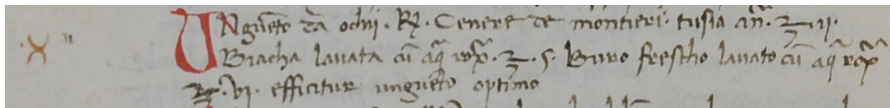 UNgueto cta ochii. Rx. Cenere de montieri. tusia añ. ʒ. ii.
Biacha lauata cũ aq̃ rox̃. ʒ. s. Buro frescho lauato cũ aq̃ rox̃
ʒ. vi. efficitur ungueto optimo